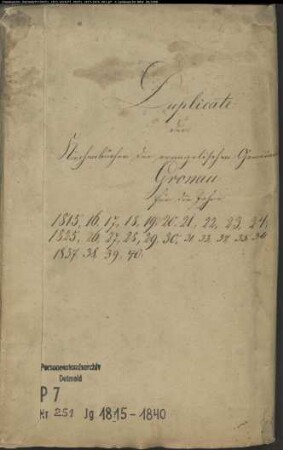 Duplicate
der
Kirchenbücher der evangelischen Gemeinde
Gronau
für die Jahre
1815, 16, 17, 18, 19, 20, 21, 22, 23, 24,
1825, 26, 27, 28, 29, 30, 31 32. 33. 35 36
1837. 38. 39. 40.
Personenstandsarchiv
Detmold
P 7
Nr 251 Jg 1815-1840